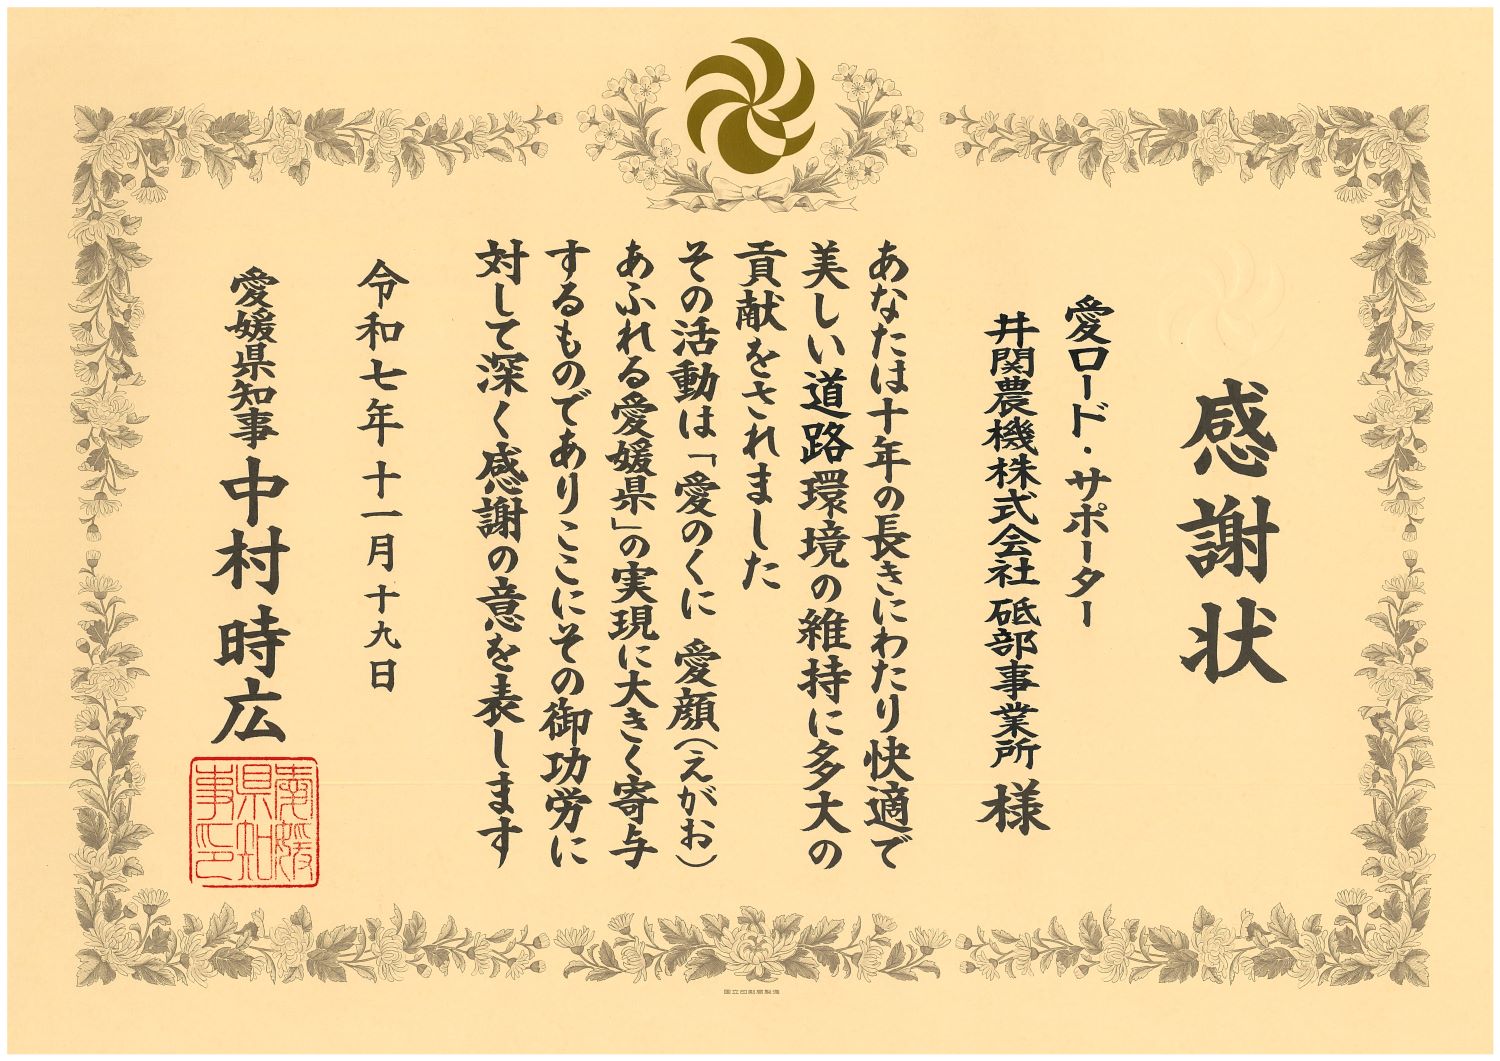 感謝状
愛ロード・サポーター
井関農機株式会社 砥部事業所 様
あなたは十年の長きにわたり快適で
美しい道路環境の維持に多大の
貢献をされました
その活動は「愛のくに 愛顔(えがお)
あふれる愛媛県」の実現に大きく寄与
するものでありここにその御功労に
対して深く感謝の意を表します
令和七年十一月十九日
愛媛県知事 中村時広
愛媛
県知
事印
国立印刷局製造